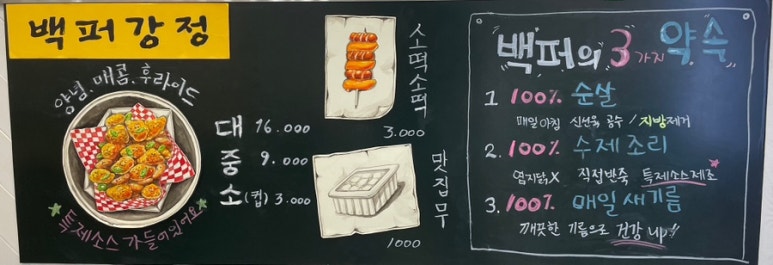 백퍼강정
양념.매콤.후라이드
특제소스가 들어있어요
대 16.000
중 9.000
소(컵) 3.000
소떡소떡
3.000
맛집무
1000
백퍼의 3가지 약속
1 100% 순살
매일아침 신선육 공수 / 지방제거
2. 100% 수제 조리
염지닭X 직접반죽 특제소스제조
3. 100% 매일 새기름
깨끗한 기름으로 건강 up!!